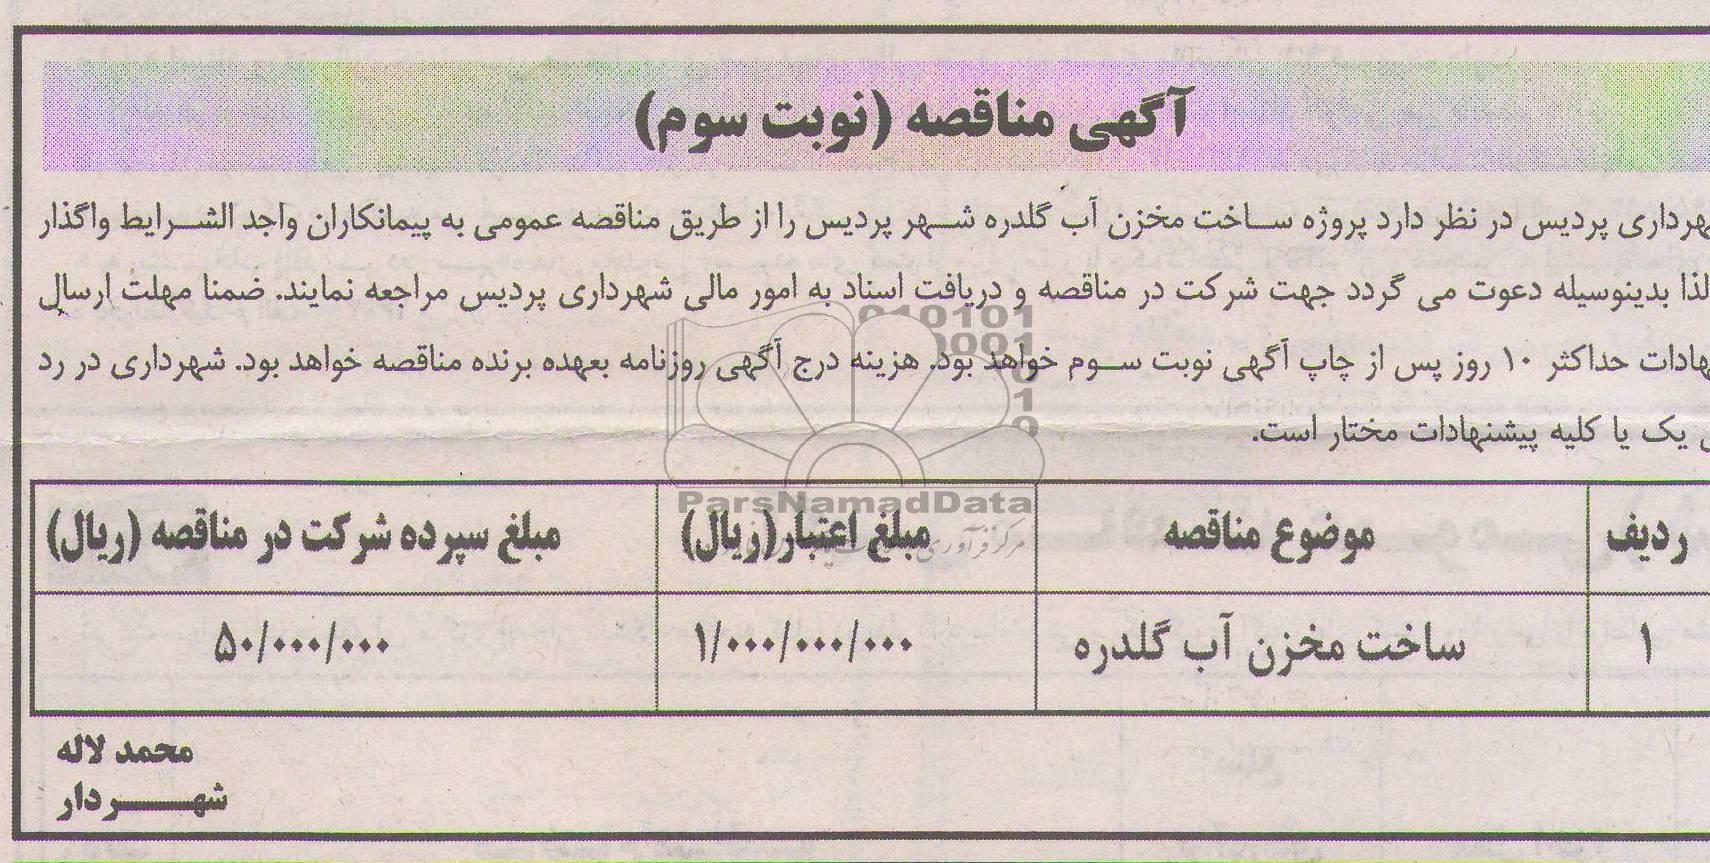 آگهی مناقصه (نوبت سوم)
هرداری پردیس در نظر دارد پروژه ساخت مخزن آب گلدره شهر پردیس را از طریق مناقصه عمومی به پیمانکاران واجد الشرایط واگذار
لذا بدینوسیله دعوت می گردد جهت شرکت در مناقصه و دریافت اسناد به امور مالی شهرداری پردیس مراجعه نمایند. ضمنا مهلت ارسال
هادات حداکثر ۱۰ روز پس از چاپ آگهی نوبت سوم خواهد بود. هزینه درج آگهی روزنامه بعهده برنده مناقصه خواهد بود. شهرداری در رد
یک یا کلیه پیشنهادات مختار است.
010101
0001
10
ParsNamadData
ردیف موضوع مناقصه مبلغ اعتبار(ریال) مبلغ سپرده شرکت در مناقصه (ریال)
۱ ساخت مخزن آب گلدره ۱/۰۰۰/۰۰۰/۰۰۰ ۵۰/۰۰۰/۰۰۰
محمد لاله
شهردار